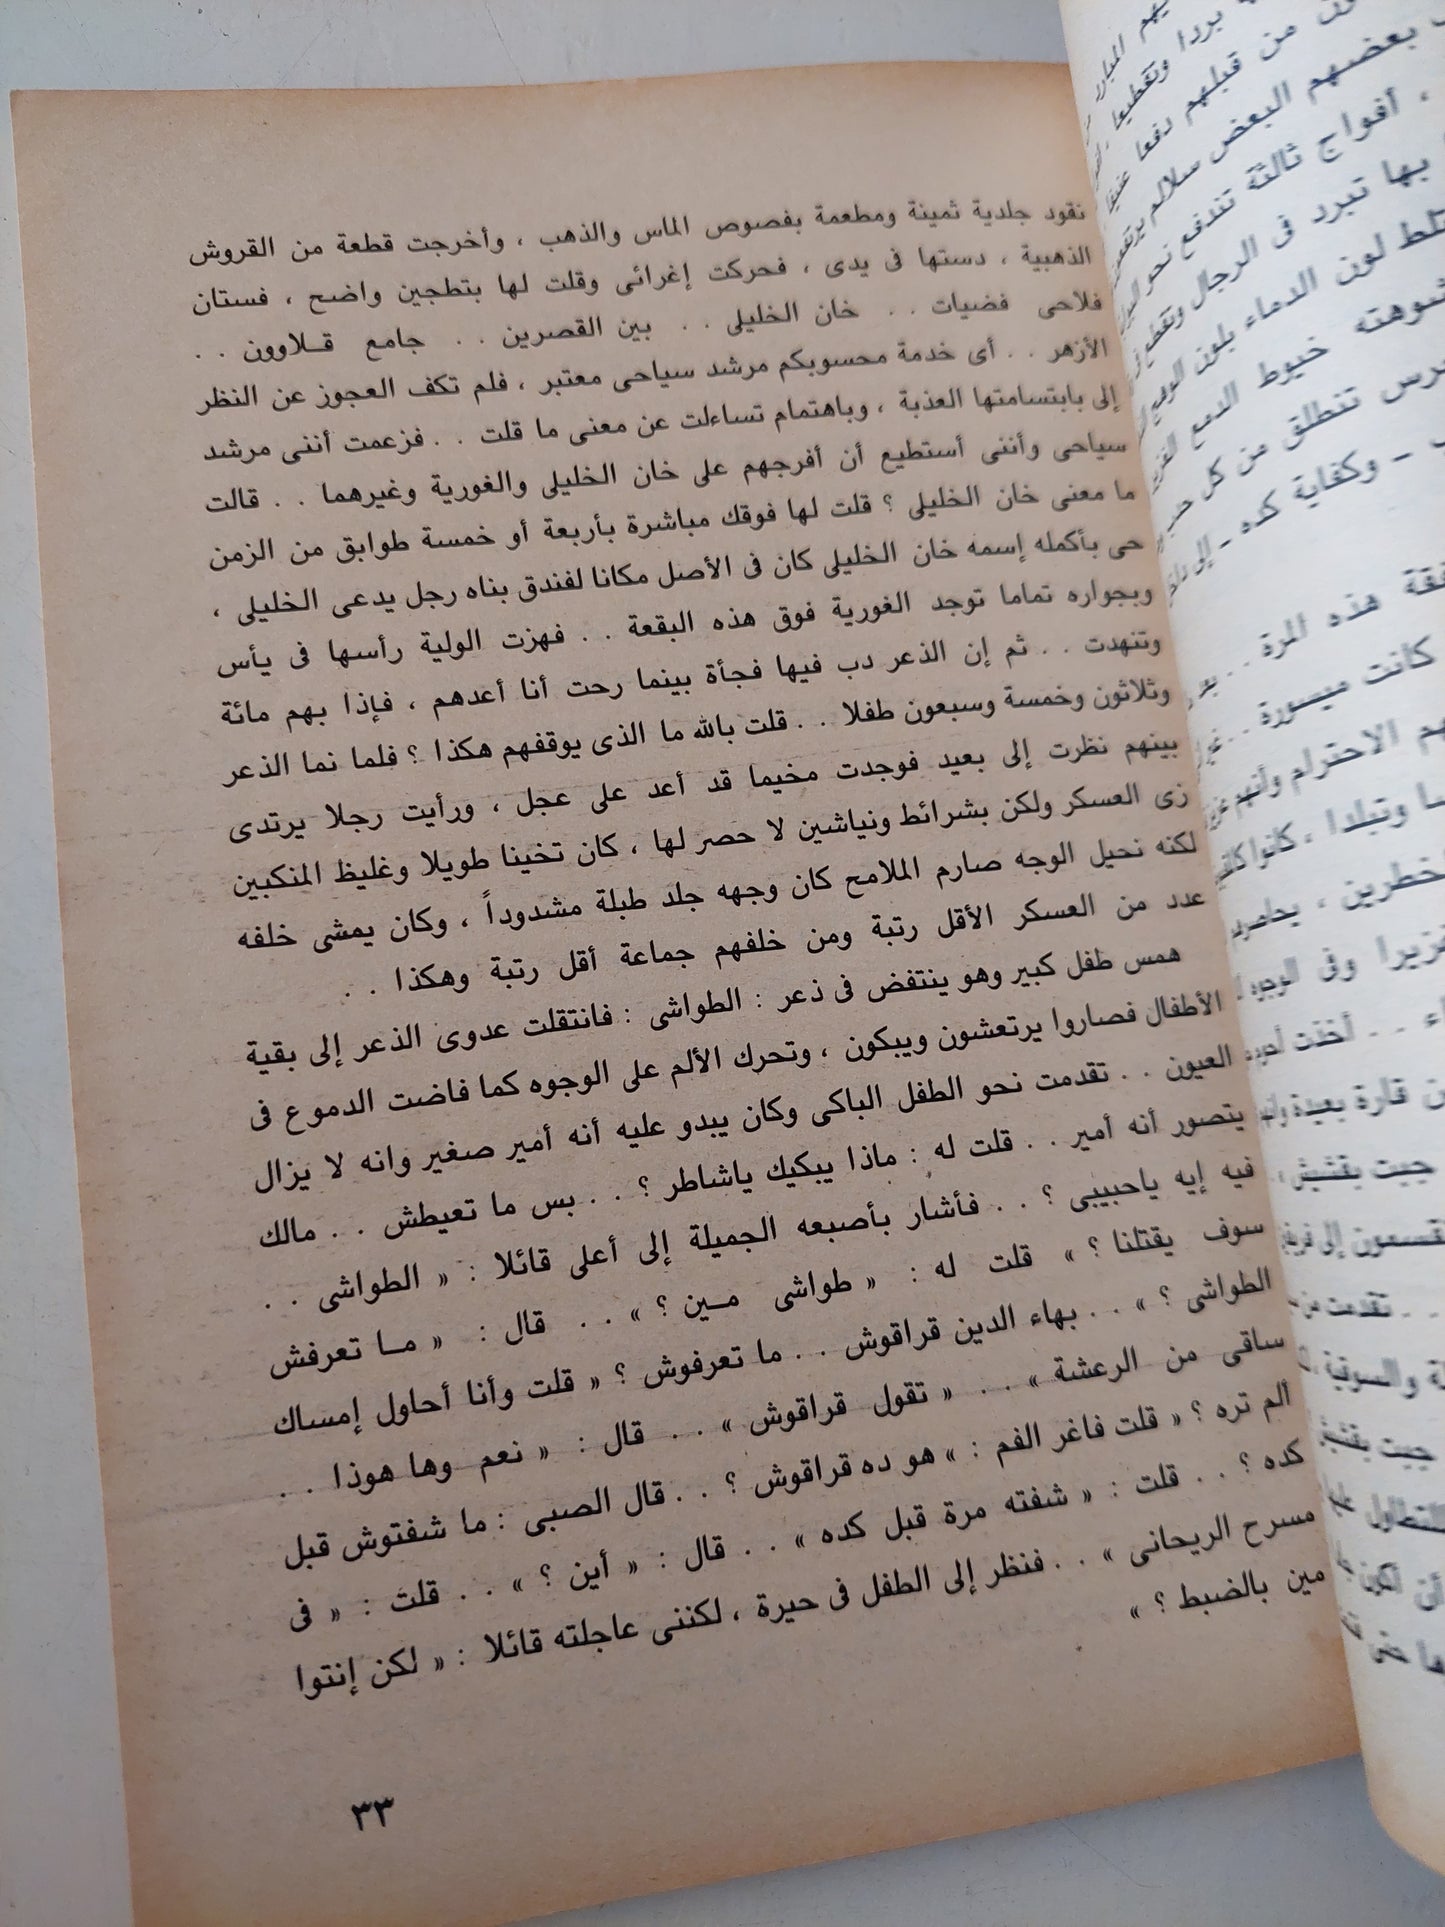 نقود جلدية ثمينة ومطعمة بفصوص الماس والذهب ، وأخرجت قطعة من القروش
الذهبية ، دستها فى يدى ، فحركت إغرائى وقلت لها بتطجين واضح ، فستان
فلاحى فضيات . . خان الخليلى . . بين القصرين . . جامع قــلاوون . .
الأزهر . . أى خدمة محسوبكم مرشد سياحى معتبر ، فلم تكف العجوز عن النظر
إلى بابتسامتها العذبة ، وباهتمام تساءلت عن معنى ما قلت . . فزعمت أننى مرشد
سياحى وأننى أستطيع أن أفرجهم على خان الخليلى والغورية وغيرهما . . قالت
ما معنى خان الخليلى ؟ قلت لها فوقك مباشرة بأربعة أو خمسة طوابق من الزمن
حى بأكمله إسمه خان الخليلى كان فى الأصل مكانا لفندق بناه رجل يدعى الخليلى ،
وبجواره تماما توجد الغورية فوق هذه البقعة . . فهزت الولية رأسها فى يأس
وتنهدت . . ثم إن الذعر دب فيها فجأة بينما رحت أنا أعدهم ، فإذا بهم مائة
وثلاثون وخمسة وسبعون طفلا . . قلت بالله ما الذى يوقفهم هكذا ؟ فلما نما الذعر
بينهم نظرت إلى بعيد فوجدت مخيما قد أعد على عجل ، ورأيت رجلا يرتدى
زى العسكر ولكن بشرائط ونياشين لا حصر لها ، كان تخينا طويلا وغليظ المنكبين
لكنه نحيل الوجه صارم الملامح كان وجهه جلد طبلة مشدوداً ، وكان يمشى خلفه
عدد من العسكر الأقل رتبة ومن خلفهم جماعة أقل رتبة وهكذا . .
همس طفل كبير وهو ينتفض فى ذعر : الطواشى : فانتقلت عدوى الذعر إلى بقية
الأطفال فصاروا يرتعشون ويبكون ، وتحرك الألم على الوجوه كما فاضت الدموع فى
العيون . . تقدمت نحو الطفل الباكى وكان يبدو عليه أنه أمير صغير وانه لا يزال
يتصور أنه أمير . . قلت له : ماذا يبكيك ياشاطر ؟ . . بس ما تعيطش . . مالك
فيه إيه ياحبيبى ؟ . . فأشار بأصبعه الجميلة إلى أعلى قائلا : « الطواشى . .
سوف يقتلنا ؟ » قلت له : « طواشى مــين ؟ » . . قال : « مــا تعرفش
الطواشى ؟ » . . بهاء الدين قراقوش . . ما تعرفوش ؟ « قلت وأنا أحاول إمساك
ساقى من الرعشة » . . « تقول قراقوش » . . قال : « نعم وها هوذا . .
ألم تره ؟ « قلت فاغر الفم : » هو ده قراقوش ؟ . . قال الصبى : ما شفتوش قبل
كده ؟ . . قلت : « شفته مرة قبل كده » . . قال : « أين ؟ » . . قلت : « فى
مسرح الريحانى » . . فنظر إلى الطفل فى حيرة ، لكننى عاجلته قائلا : « لكن إنتوا
مين بالضبط ؟ »
٣٣
بردا وتقطيعا
من قبلهم دفعا
بعضهم البعض سلالم
، أفواج ثالثة تندفع نحو
بها تبرد فى الرجال وتقطع
لون الدماء بلون
خيوط الدمع
تنطلق من كل
- وكفاية كده - إلى
هذه المرة . .
كانت ميسورة . .
الاحترام وأنهم
وتبلدا ، كانوا
خطرين ،
وفى الوجوه
. . أخذت
قارة بعيدة
جيت يقشيش
إلى
. . تقدمت من
والسوقية
جيت
أن
حتى